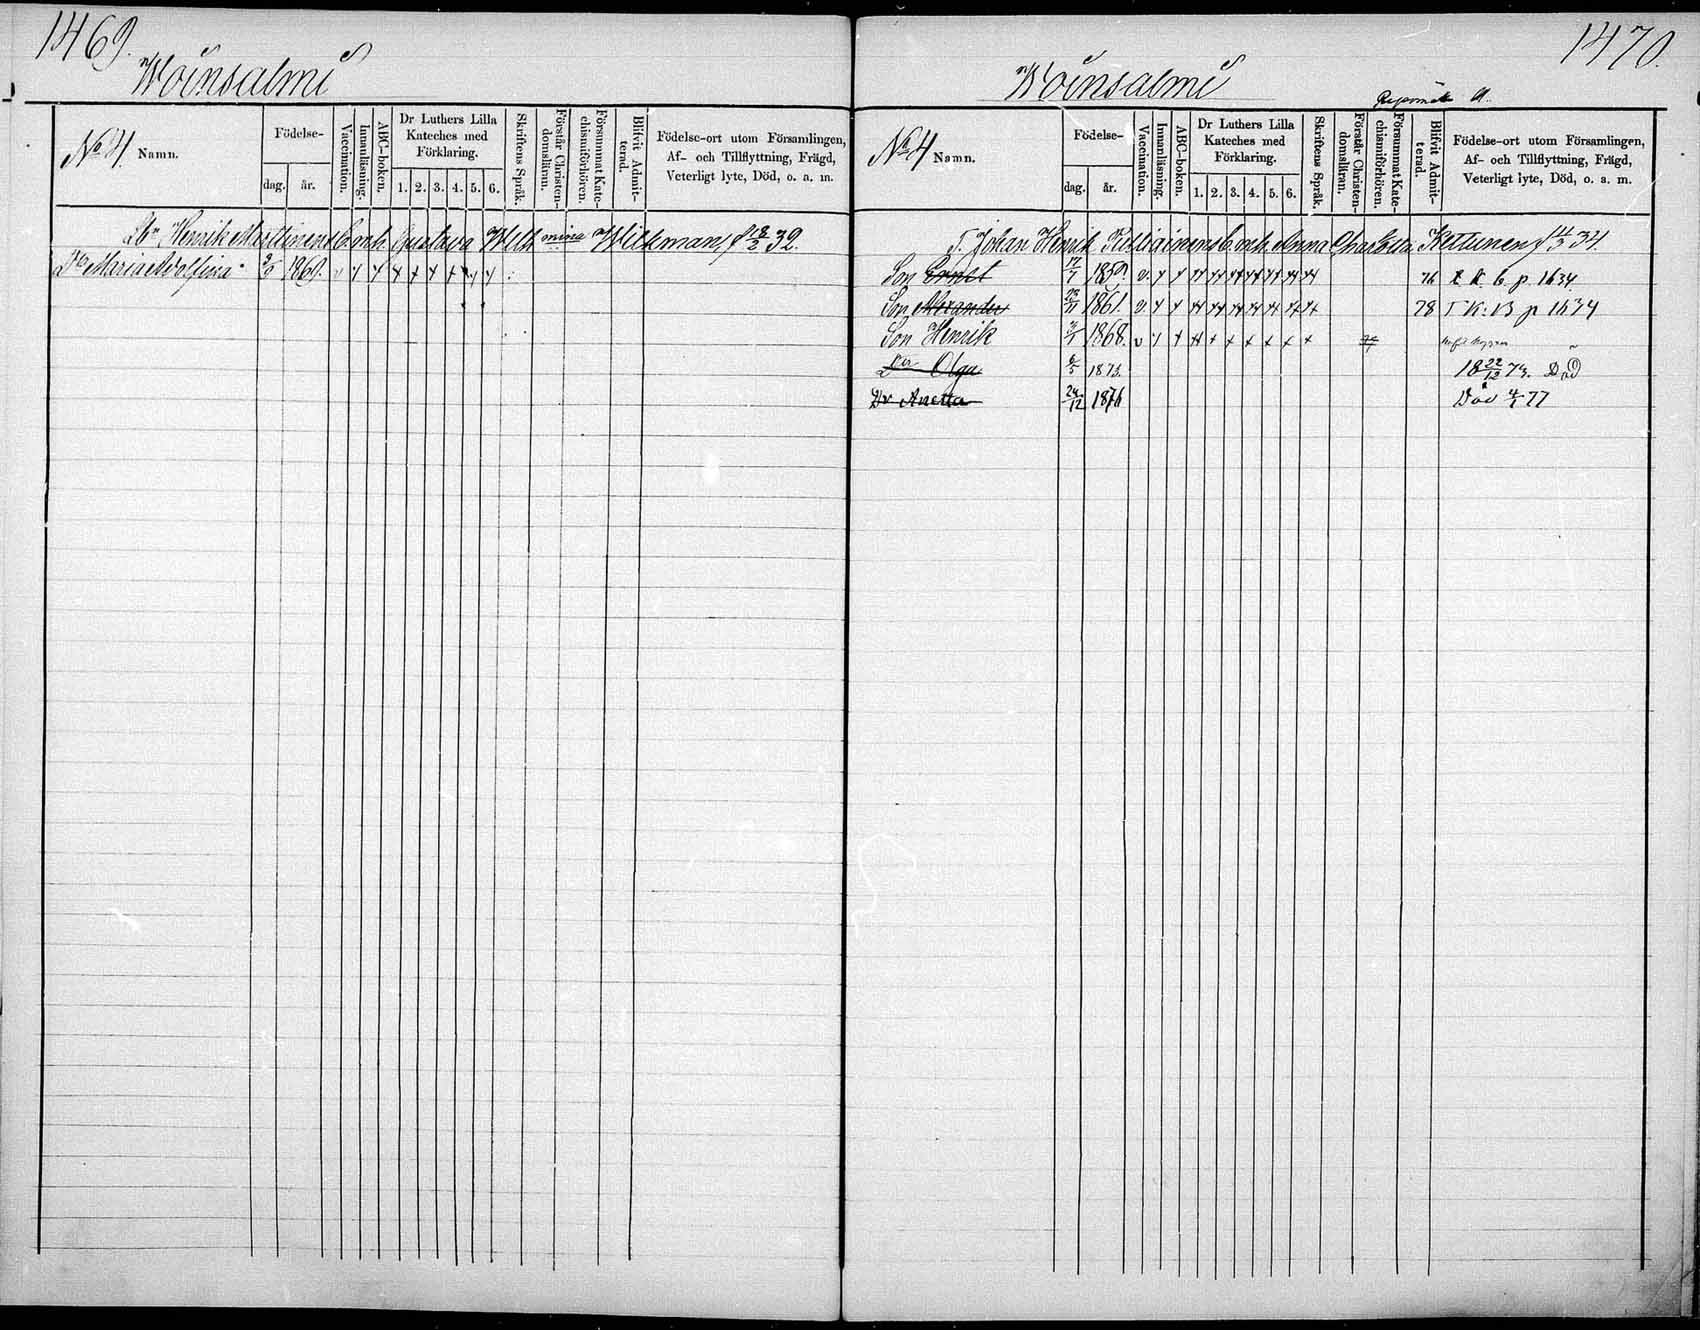 1469.
Woinsalmi
No 4. Namn.
Födelse-
dag. år.
Vaccination.
Innanläsning.
ABC-boken.
Dr Luthers Lilla
Kateches med
Förklaring.
1. 2. 3. 4. 5. 6.
Skriftens Språk.
Förstår Christen-
domsläran.
Försummat Kate-
chismiförhören.
Blifvit Admit-
terad.
Födelse-ort utom Församlingen,
Af- och Tillflyttning, Frägd,
Veterligt lyte, Död, o. a. m.
Henrik Enh. Gustava Wilhelmina Wilkman f 18/2 32.
Maria Adolfina 1869.
1470.
Woinsalmi
No 4 Namn.
Födelse-
dag. år.
Vaccination.
Innanläsning.
ABC-boken.
Dr Luthers Lilla
Kateches med
Förklaring.
1. 2. 3. 4. 5. 6.
Skriftens Språk.
Förstår Christen-
domsläran.
Försummat Kate-
chismiförhören.
Blifvit Admit-
terad.
Födelse-ort utom Församlingen,
Af- och Tillflyttning, Frägd,
Veterligt lyte, Död, o. a. m.
Johan Henrik Enh. Anna Charlotta Kettunen f 4/3 34.
Son Ernst 17/7 1859. 76 p. 1634.
Son Alexander 1861. 78 p 1634
Son Henrik 1868.
Dr Olga 6/5 1873. 18 22/12 73. Död
Dr Anetta 24/12 1876 Död 4/1 77